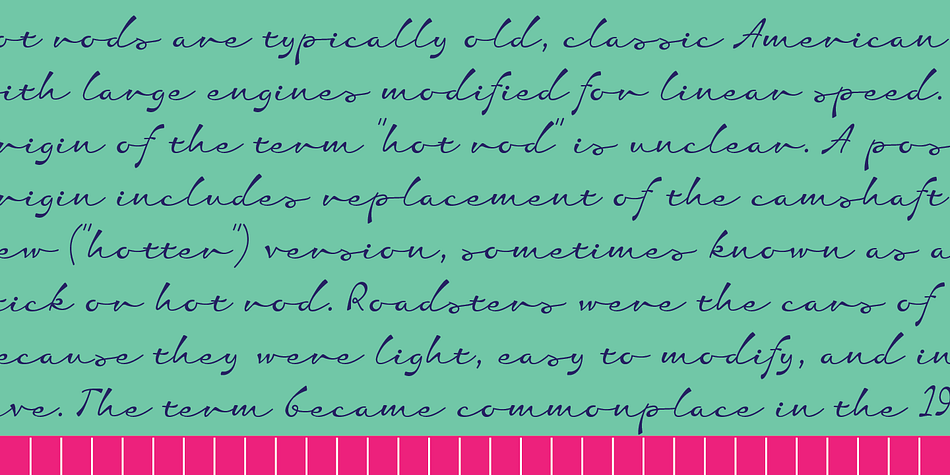 ot rods are typically old, classic American
ith large engines modified for linear speed.
rigin of the term "hot rod" is unclear. A pos
rigin includes replacement of the camshaft
ew ("hotter") version, sometimes known as a
tick or hot rod. Roadsters were the cars of
ecause they were light, easy to modify, and in
ve. The term became commonplace in the 19